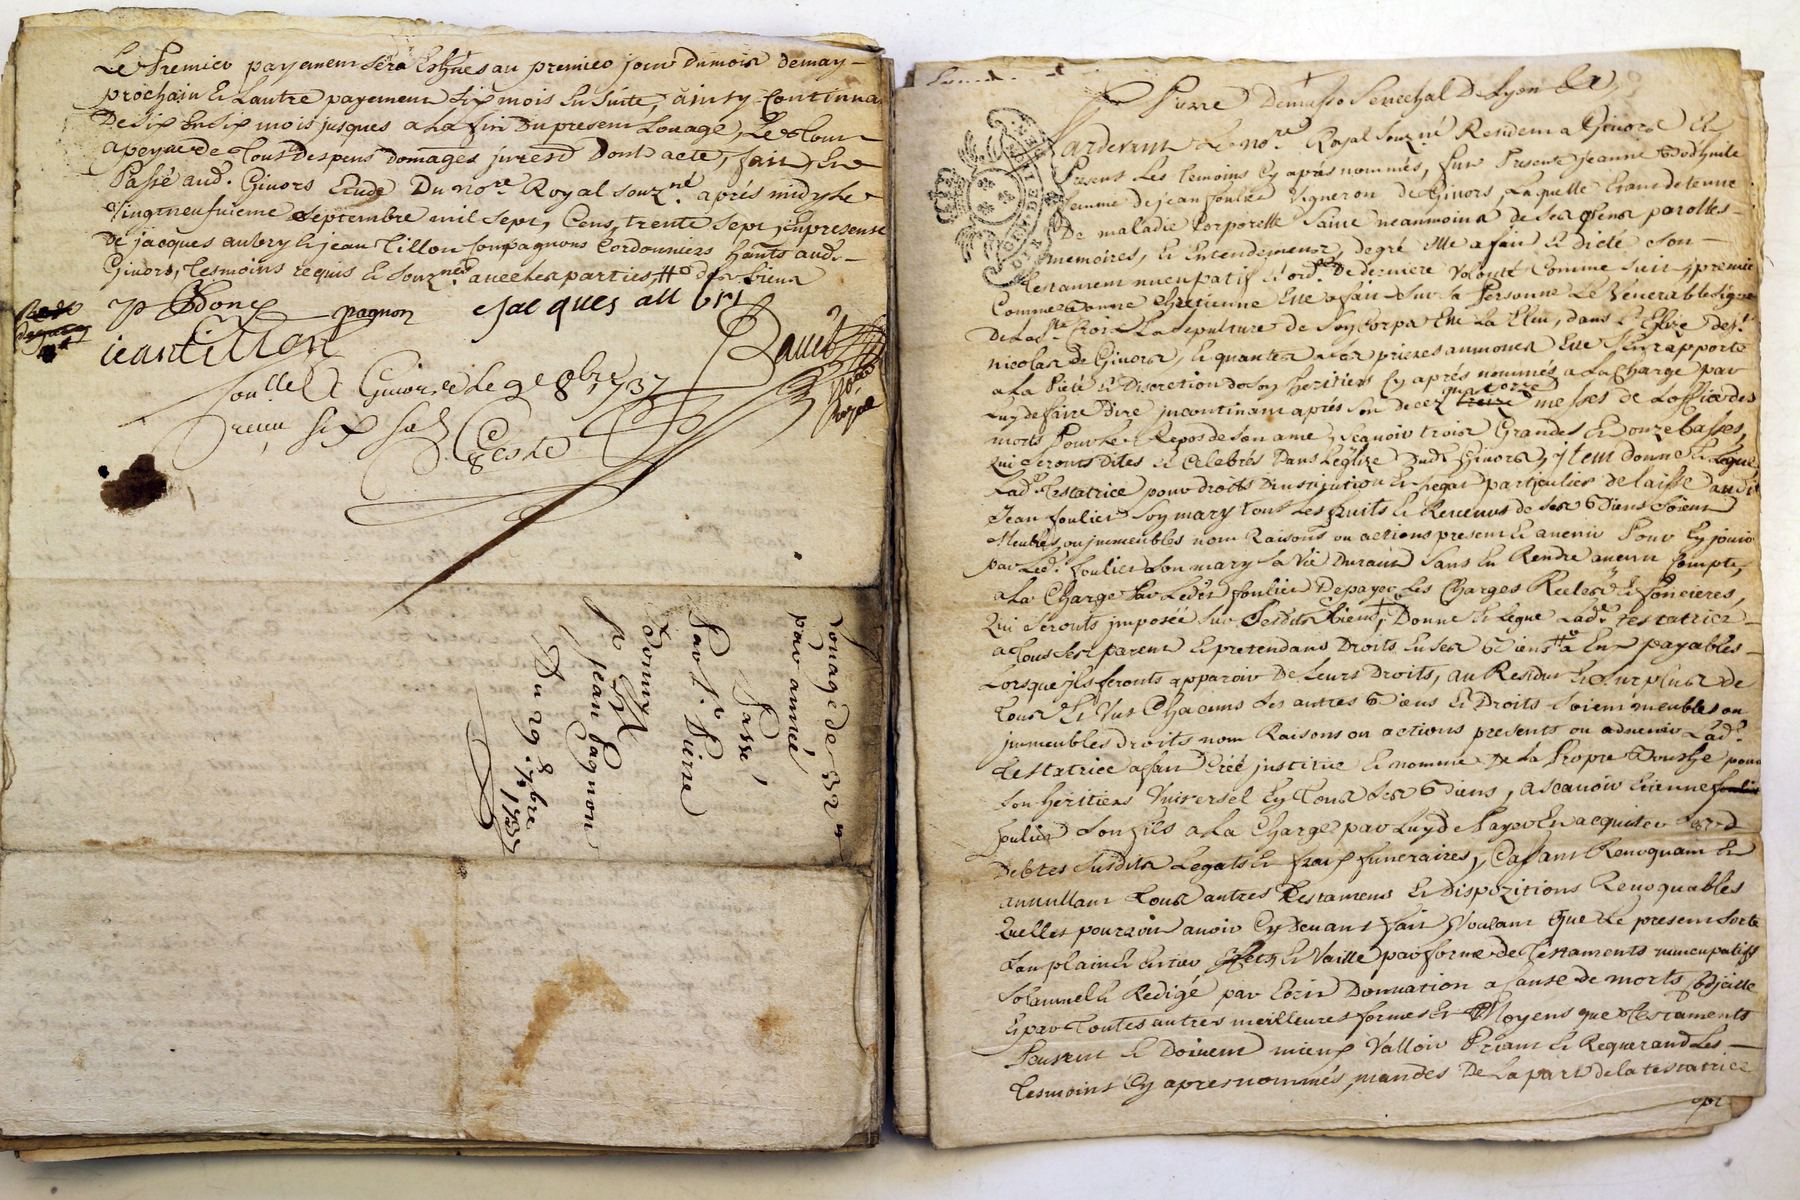 Le Premier payement sera Eschues au premier jour du mois demay
prochain Et Lautre payement six mois En suite, ainsy Continuer
De six En six mois jusques a La fin Du present Louage, Le tour
a peyne de tous despens domages jnrest Dont acte, fait, Et
Passé aud. Givors Etude Du no.re Royal souz.né aprés midy Le
Vingtneufuieme septembre mil sept, Cens, trente sept, En presense
De jacques aubry Et jean tillon Compagnons Cordonniers habts aud.
Givors, tesmoins requis Et souz.nez avec Les parties
pagnon Jacques aubri
jean tillon
Con.lle A Givors, Ce Le 9e 8bre 1737
receu six sols
Royal
Louage de 32 ll
par année
Passé
Par Sr. Pierre
Donnix
A
Sr. jean Pagnon
Du 29.e 7bre 1737
Pierre Demasso Senechal De Lyon
Pardevant Le no.re Royal souz.né Residant a Givors Et
Presents Les temoins Cy aprés nommés, fut Presente jeanne
femme de jean foulier Vigneron de Givors, Laquelle Etant detenue
De maladie Corporelle saine neanmoins de ses sens parolles
memoires, Et Entendement, de gré Elle a fait Et dicté son
testament nuncupatif Et ord.re De derniere Volonté Comme suit, premier
Comme bonne Chretienne Elle a fait sur sa Personne Le Venerable signe
De La S.te Croix La sepulture de son Corps Elle La Elue, dans L'Eglize de St.
nicolas de Givors, Et quant a ses prieres aumones Elle s'En rapporte
a La Pieté Et Discretion de son heritier Cy aprés nommés a La Charge par
Luy de faire Dire jncontinant aprés son decez quatorze messes de Loffice des
morts Pour Le Repos de son ame, sçauoir trois Grandes Et onze basses,
qui seronts Dites Et Celebrés Dans Leglize Dud. Givors, jtem donne Et Legue
Lad. testatrice pour droits D'institution Et Legat particulier delaisse audit
Jean foulier son mary tous Les fruits Et Revenus de ses biens soient
Meubles ou jmmeubles nom Raisons ou actions present Et avenir Pour En jouir
par Led. foulier son mary sa Vie Durant sans En Rendre aucun Compte,
a La Charge Par Ledit foulier De payer Les Charges Reeles Et foncieres,
qui seronts jmposée sur Sesdits biens, Donne Et Legue Lad.e testatrice
a tous ses parent Et pretendans Droits En ses biens a Eux payables
Lorsque jls feronts apparoir de Leurs Droits, au Residu Et surplus de
tous Et Vns Chacuns ses autres biens Et Droits soient meubles ou
jmmeubles droits nom Raisons ou actions presents ou advenir Lad.e
testatrice a fait Créé jnstitué Et nommé De La Propre Bouche pour
son heritier Vniversel En tous ses biens, a scavoir Etienne
foulier son fils a La Charge par Luy de Payer Et acquiter
Debtes susdits Legats Et fraix funeraires, Cassant Revoquant Et
annullant tous autres testamens Et Dispozitions Revoquables
quelles pourroit avoir Cy devant fait Voulant que Le present sorte
son plain Et Entier Effect Et Vaille par forme de testaments nuncupatifs
Solannel Et Redigé par Ecrit Donnation a Cause de morts Codicille
Et par toutes autres meilleures formes Et Moyens que testaments
Peuvent Et Doivent mieux Valloir Priant Et Requerant Les
tesmoins Cy apres nommés, mandés De La part de la testatrice